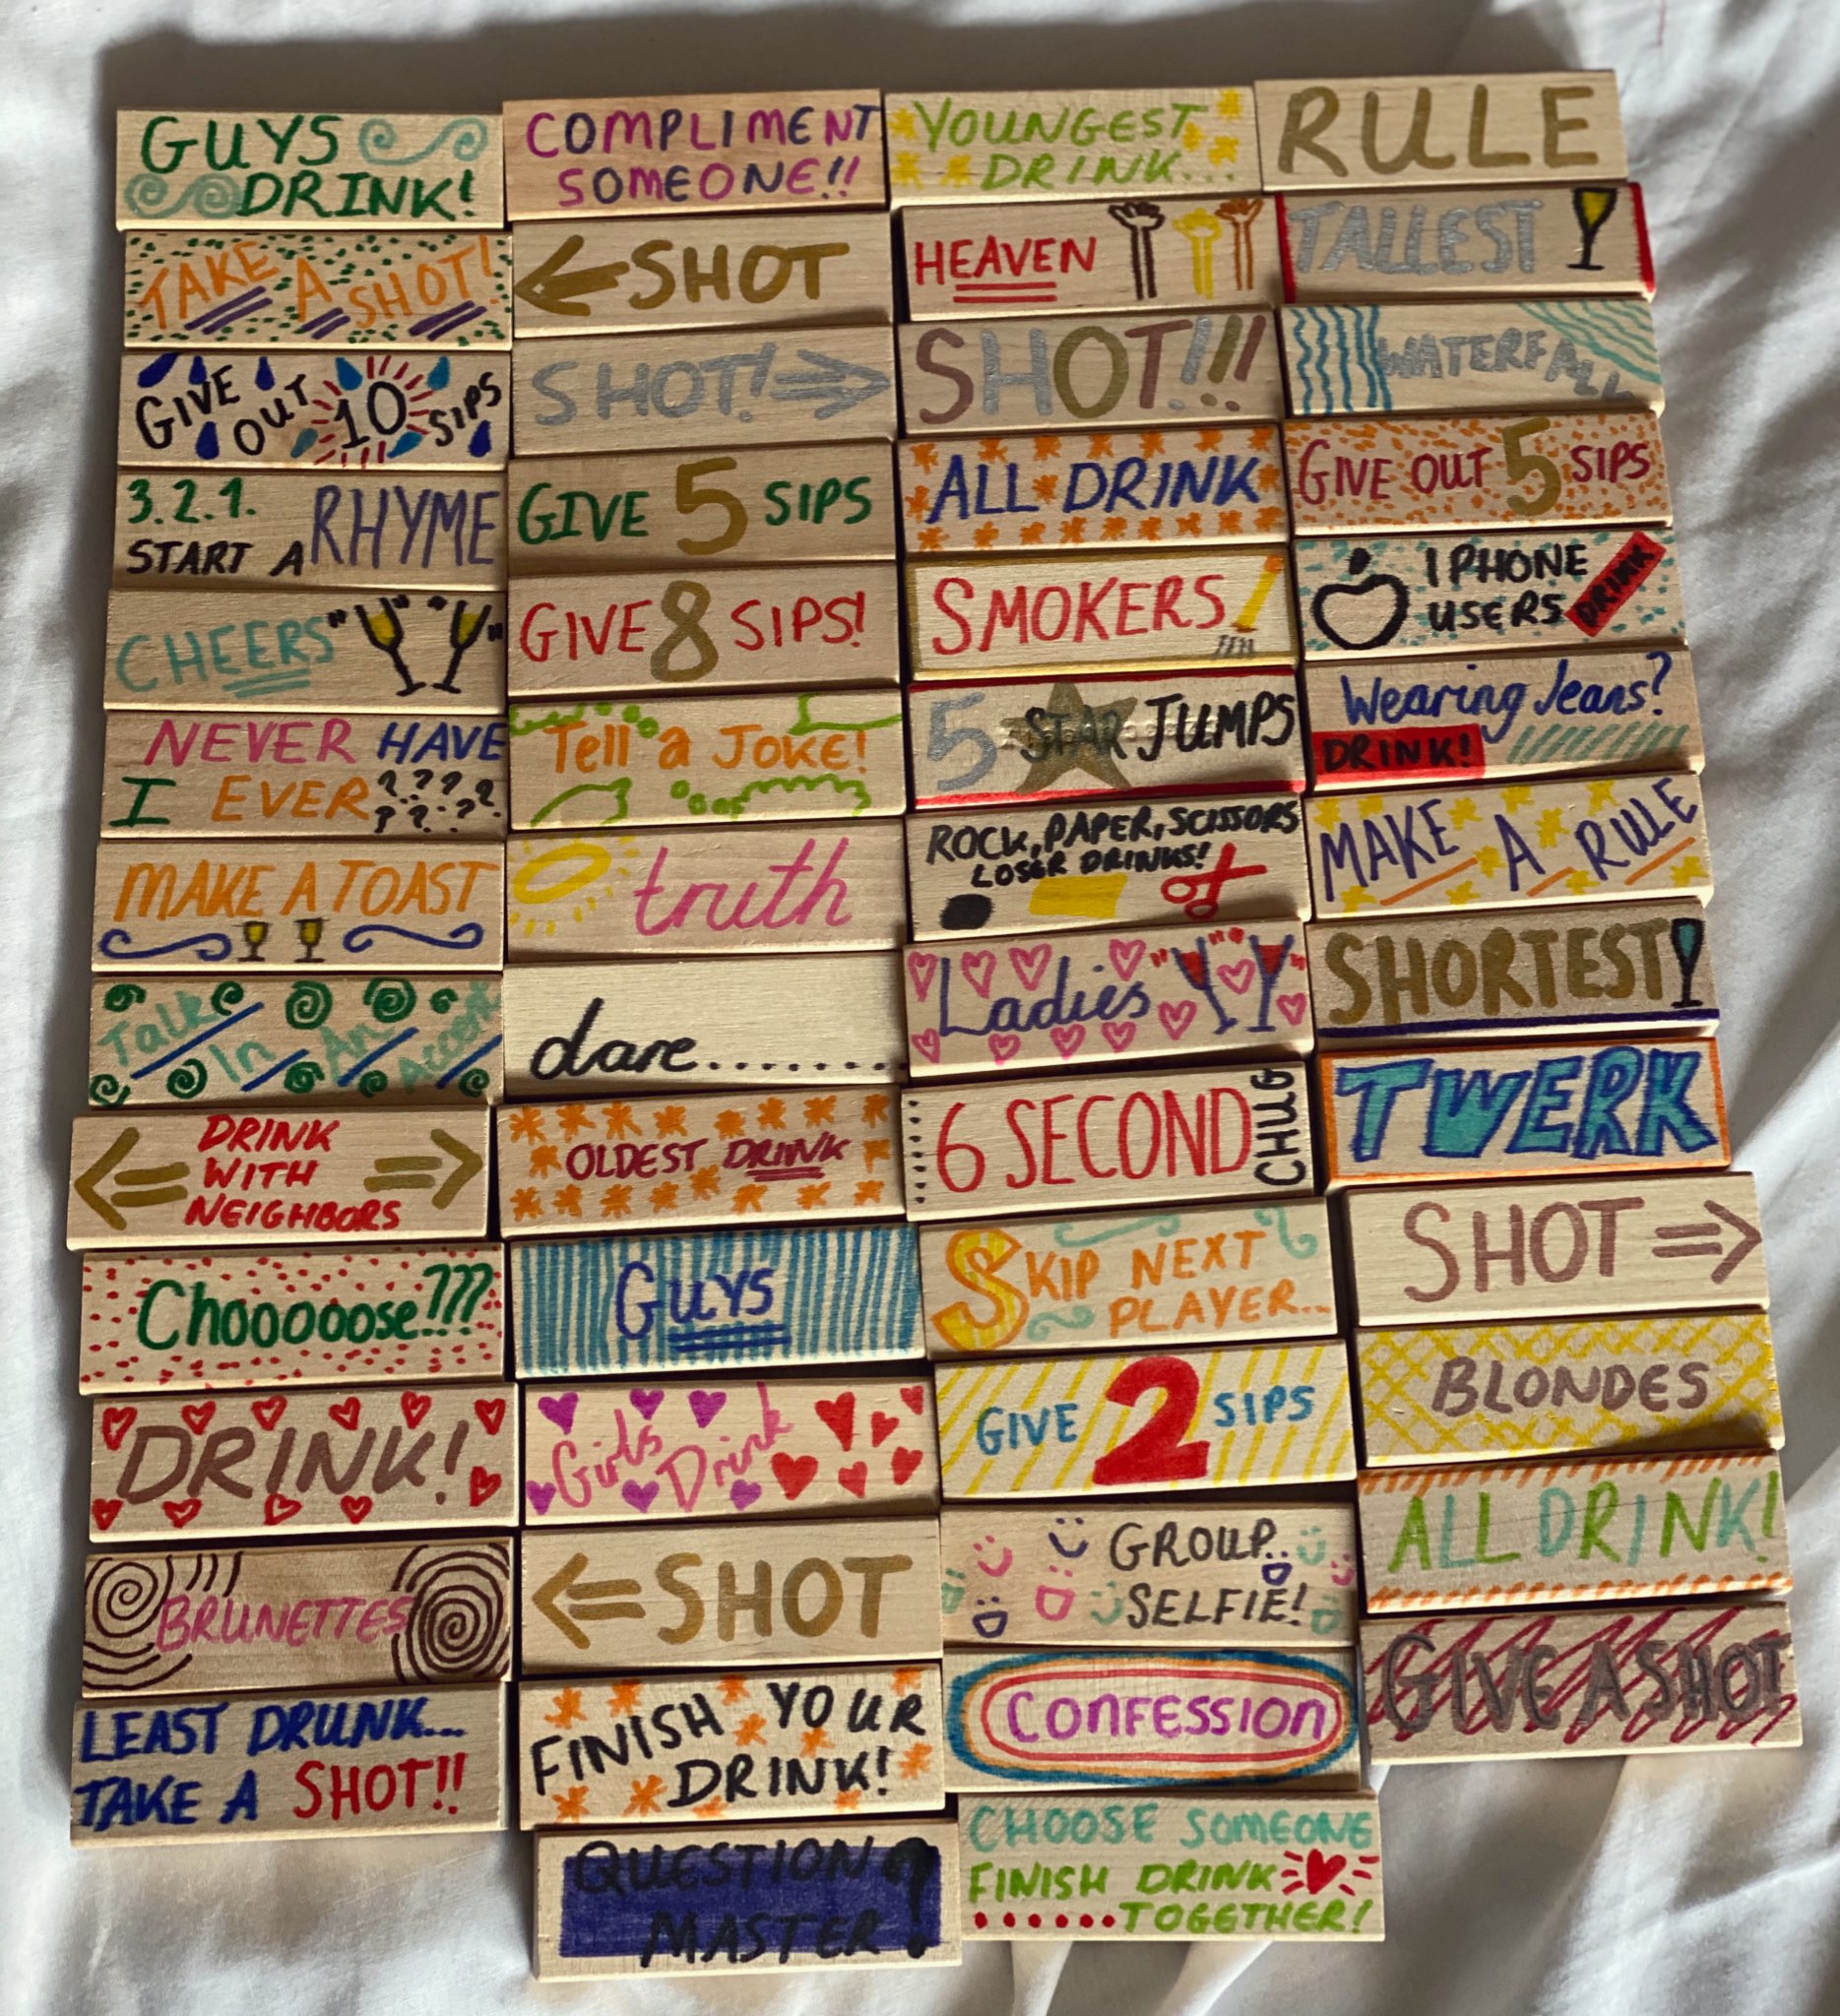 GUYS
DRINK!
TAKE A SHOT!
GIVE OUT 10 SIPS
3.2.1.
START A RHYME
CHEERS
NEVER HAVE
I EVER ????
? ? ? ?
MAKE A TOAST
Talk In An Accent
DRINK
WITH
NEIGHBORS
Chooooose???
DRINK!
BRUNETTES
LEAST DRUNK...
TAKE A SHOT!!
COMPLIMENT
SOMEONE!!
SHOT
SHOT!
GIVE 5 SIPS
GIVE 8 SIPS!
Tell a JOKE!
truth
dare.......
OLDEST DRINK
GUYS
Girls Drink
SHOT
FINISH YOUR
DRINK!
QUESTION
MASTER?
YOUNGEST
DRINK...
HEAVEN
SHOT!!!
ALL DRINK
SMOKERS
5 STAR JUMPS
ROCK, PAPER, SCISSORS
LOSER DRINKS!
Ladies
6 SECOND CHUG
SKIP NEXT
PLAYER...
GIVE 2 SIPS
GROUP..
SELFIE!
CONFESSION
CHOOSE SOMEONE
FINISH DRINK
......TOGETHER!
RULE
TALLEST
WATERFALL
GIVE OUT 5 SIPS
I PHONE
USERS DRINK
Wearing Jeans?
DRINK!
MAKE A RULE
SHORTEST
TWERK
SHOT
BLONDES
ALL DRINK!
GIVE A SHOT